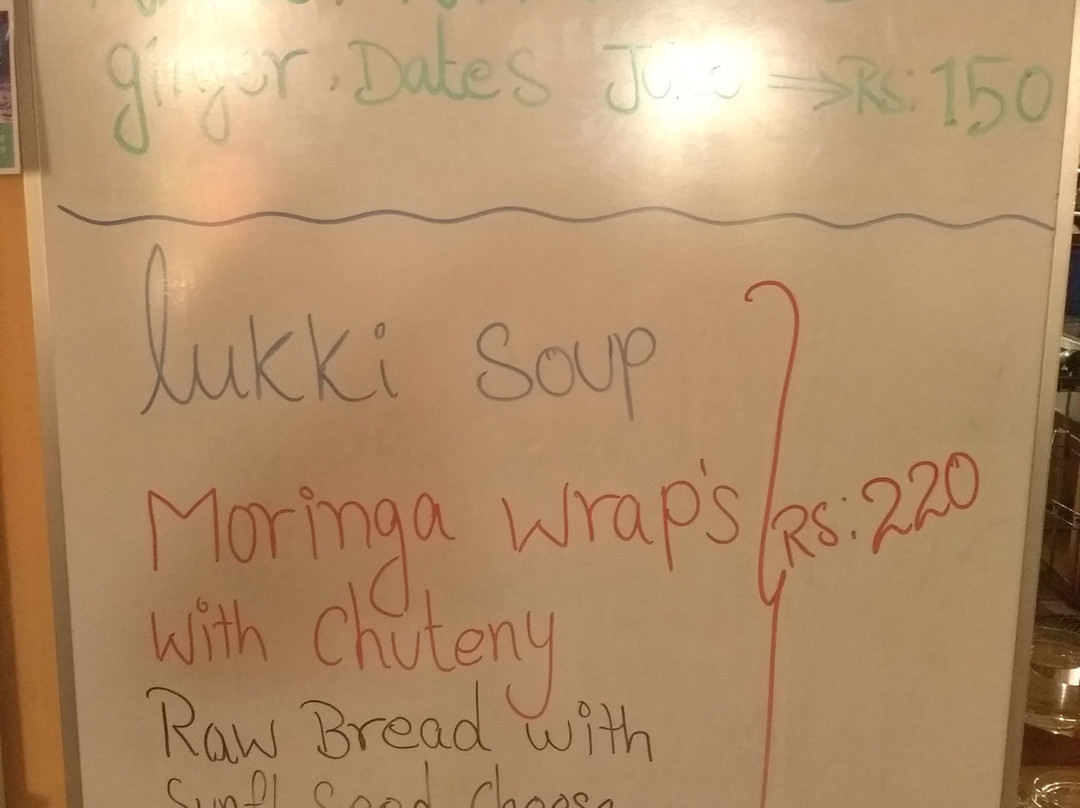 ginger. Dates Juice ⇒ Rs: 150
lukki Soup
Moringa Wrap's
Rs: 220
with Chuteny
Raw Bread with
Sunfl Seed Cheese